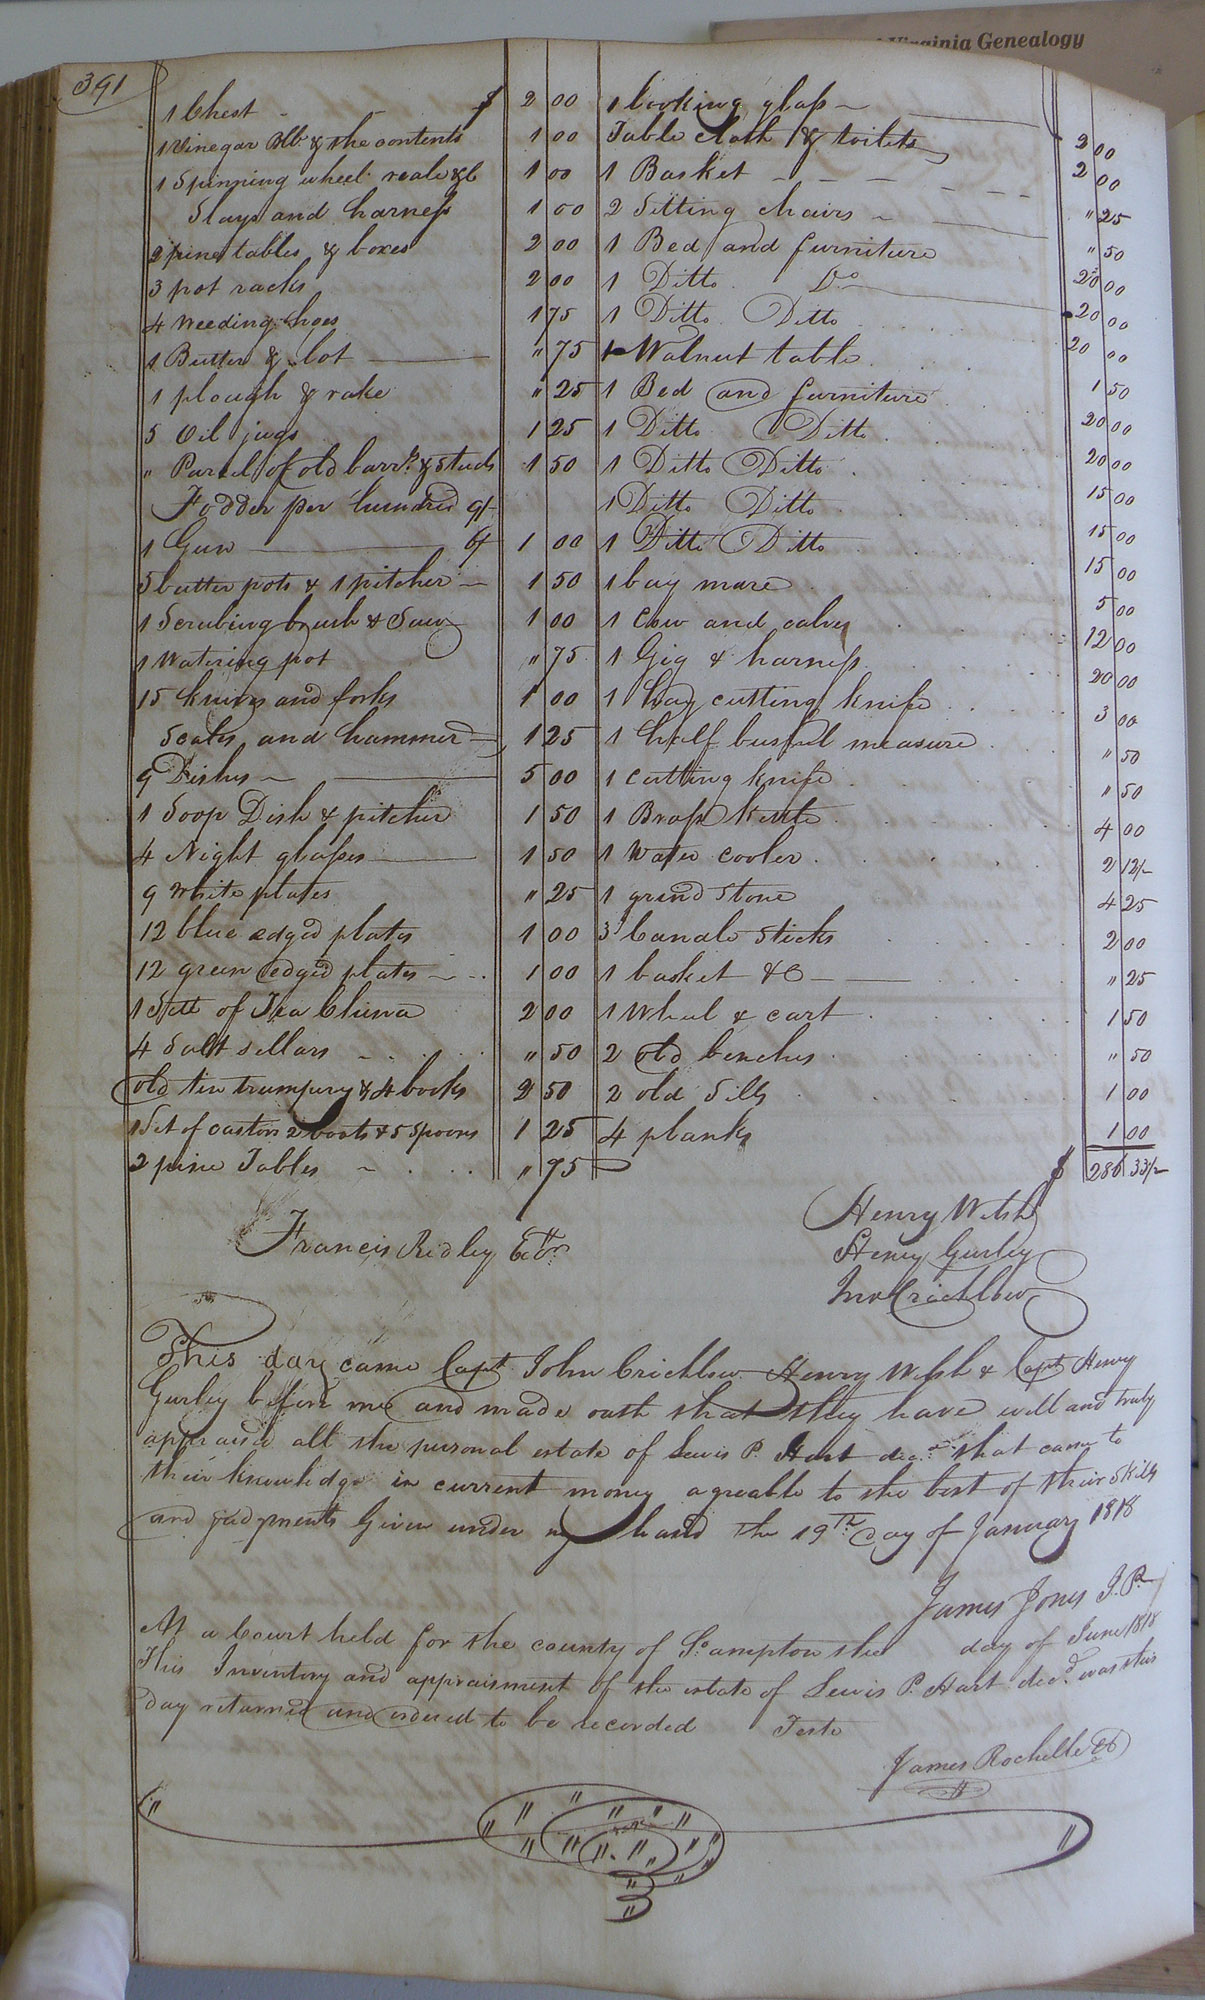 Virginia Genealogy
391
1 Chest $ 2 00
1 Vinegar Bbl. & the contents 1 00
1 Spinning wheel reale &c 1 00
Slays and harness 1 00
2 pine tables & boxes 2 00
3 pot racks 2 00
4 Weeding hoes 1 75
1 Butter & lot " 75
1 plough & rake " 25
5 Oil jugs 1 25
" Parcel of old barrs. & studs 1 50
Fodder per hundred 9/-
1 Gun 6/ 1 00
5 butter pots & 1 pitcher 1 50
1 Scrubing brush & Saw 1 00
1 Watering pot " 75
15 knives and forks 1 00
Scales and hammer 1 25
9 Dishes 5 00
1 Soop Dish & pitcher 1 50
4 Night glasses 1 50
9 White plates " 25
12 blue edged plates 1 00
12 green edged plates 1 00
1 Sett of Tea China 2 00
4 Salt sellars " 50
old tin trumpery & 4 books 2 50
1 Set of castors 2 boats & 5 Spoons 1 25
2 pine Tables " 75
1 looking glass 2 00
Table cloth & toilets 2 00
1 Basket " 25
2 Sitting chairs " 50
1 Bed and furniture 20 00
1 Ditto Do 20 00
1 Ditto Ditto 20 00
1 Walnut table 1 50
1 Bed and furniture 20 00
1 Ditto Ditto 20 00
1 Ditto Ditto 15 00
1 Ditto Ditto 15 00
1 Ditto Ditto 15 00
1 bay mare 5 00
1 Cow and calves 12 00
1 Gig & harness 20 00
1 hay cutting knife 3 00
1 half bushel measure " 50
1 cutting knife " 50
1 Brass Kettle 4 00
1 Water cooler 2 12½
1 grind stone 4 25
3 Candle Sticks 2 00
1 basket &C " 25
1 Wheel & cart 1 50
2 old benches " 50
2 old Sills 1 00
4 planks 1 00
$ 286 33½
Francis Ridley Exr.
Henry Welsh
Henry Gurley
Jno Cricklow
This day came Capt John Cricklow Henry Welsh & Capt Henry
Gurley before me and made oath that they have well and truly
appraised all the personal estate of Lewis P. Hart decd. that came to
their knowledge in current money agreable to the best of their skills
and judgments Given under my hand the 19th. day of January 1818
James Jones J.P.
At a Court held for the county of So.ampton the day of June 1818
This Inventory and appraisment of the estate of Lewis P. Hart decd. was this
day returned and ordered to be recorded Teste
James Rochelle